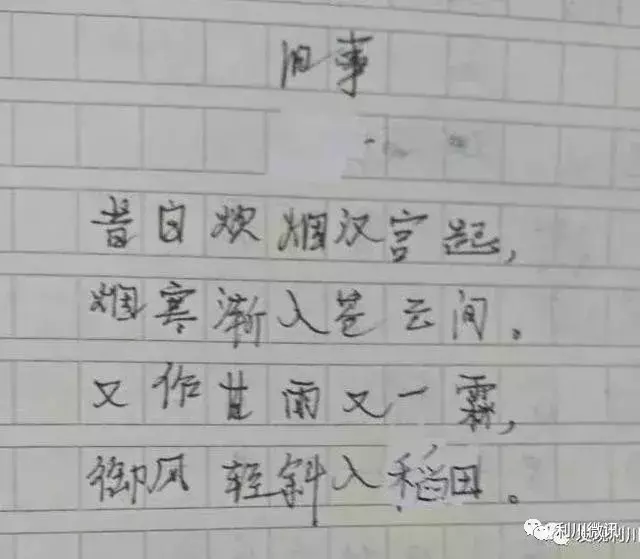 旧事
昔日炊烟汉宫起，
烟寒渐入苍云间。
又作甘雨又一霖，
御风轻斜入稻田。
利川微讯
发现利川